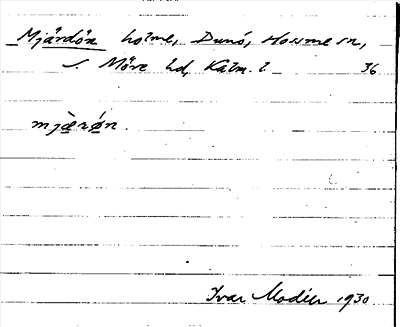 Mjärdön holme, Dunö, Hossmo sn,
S. Möre hd, Kalm. l. 36
mjæ̀rø̀n.
Ivar Modéer 1930